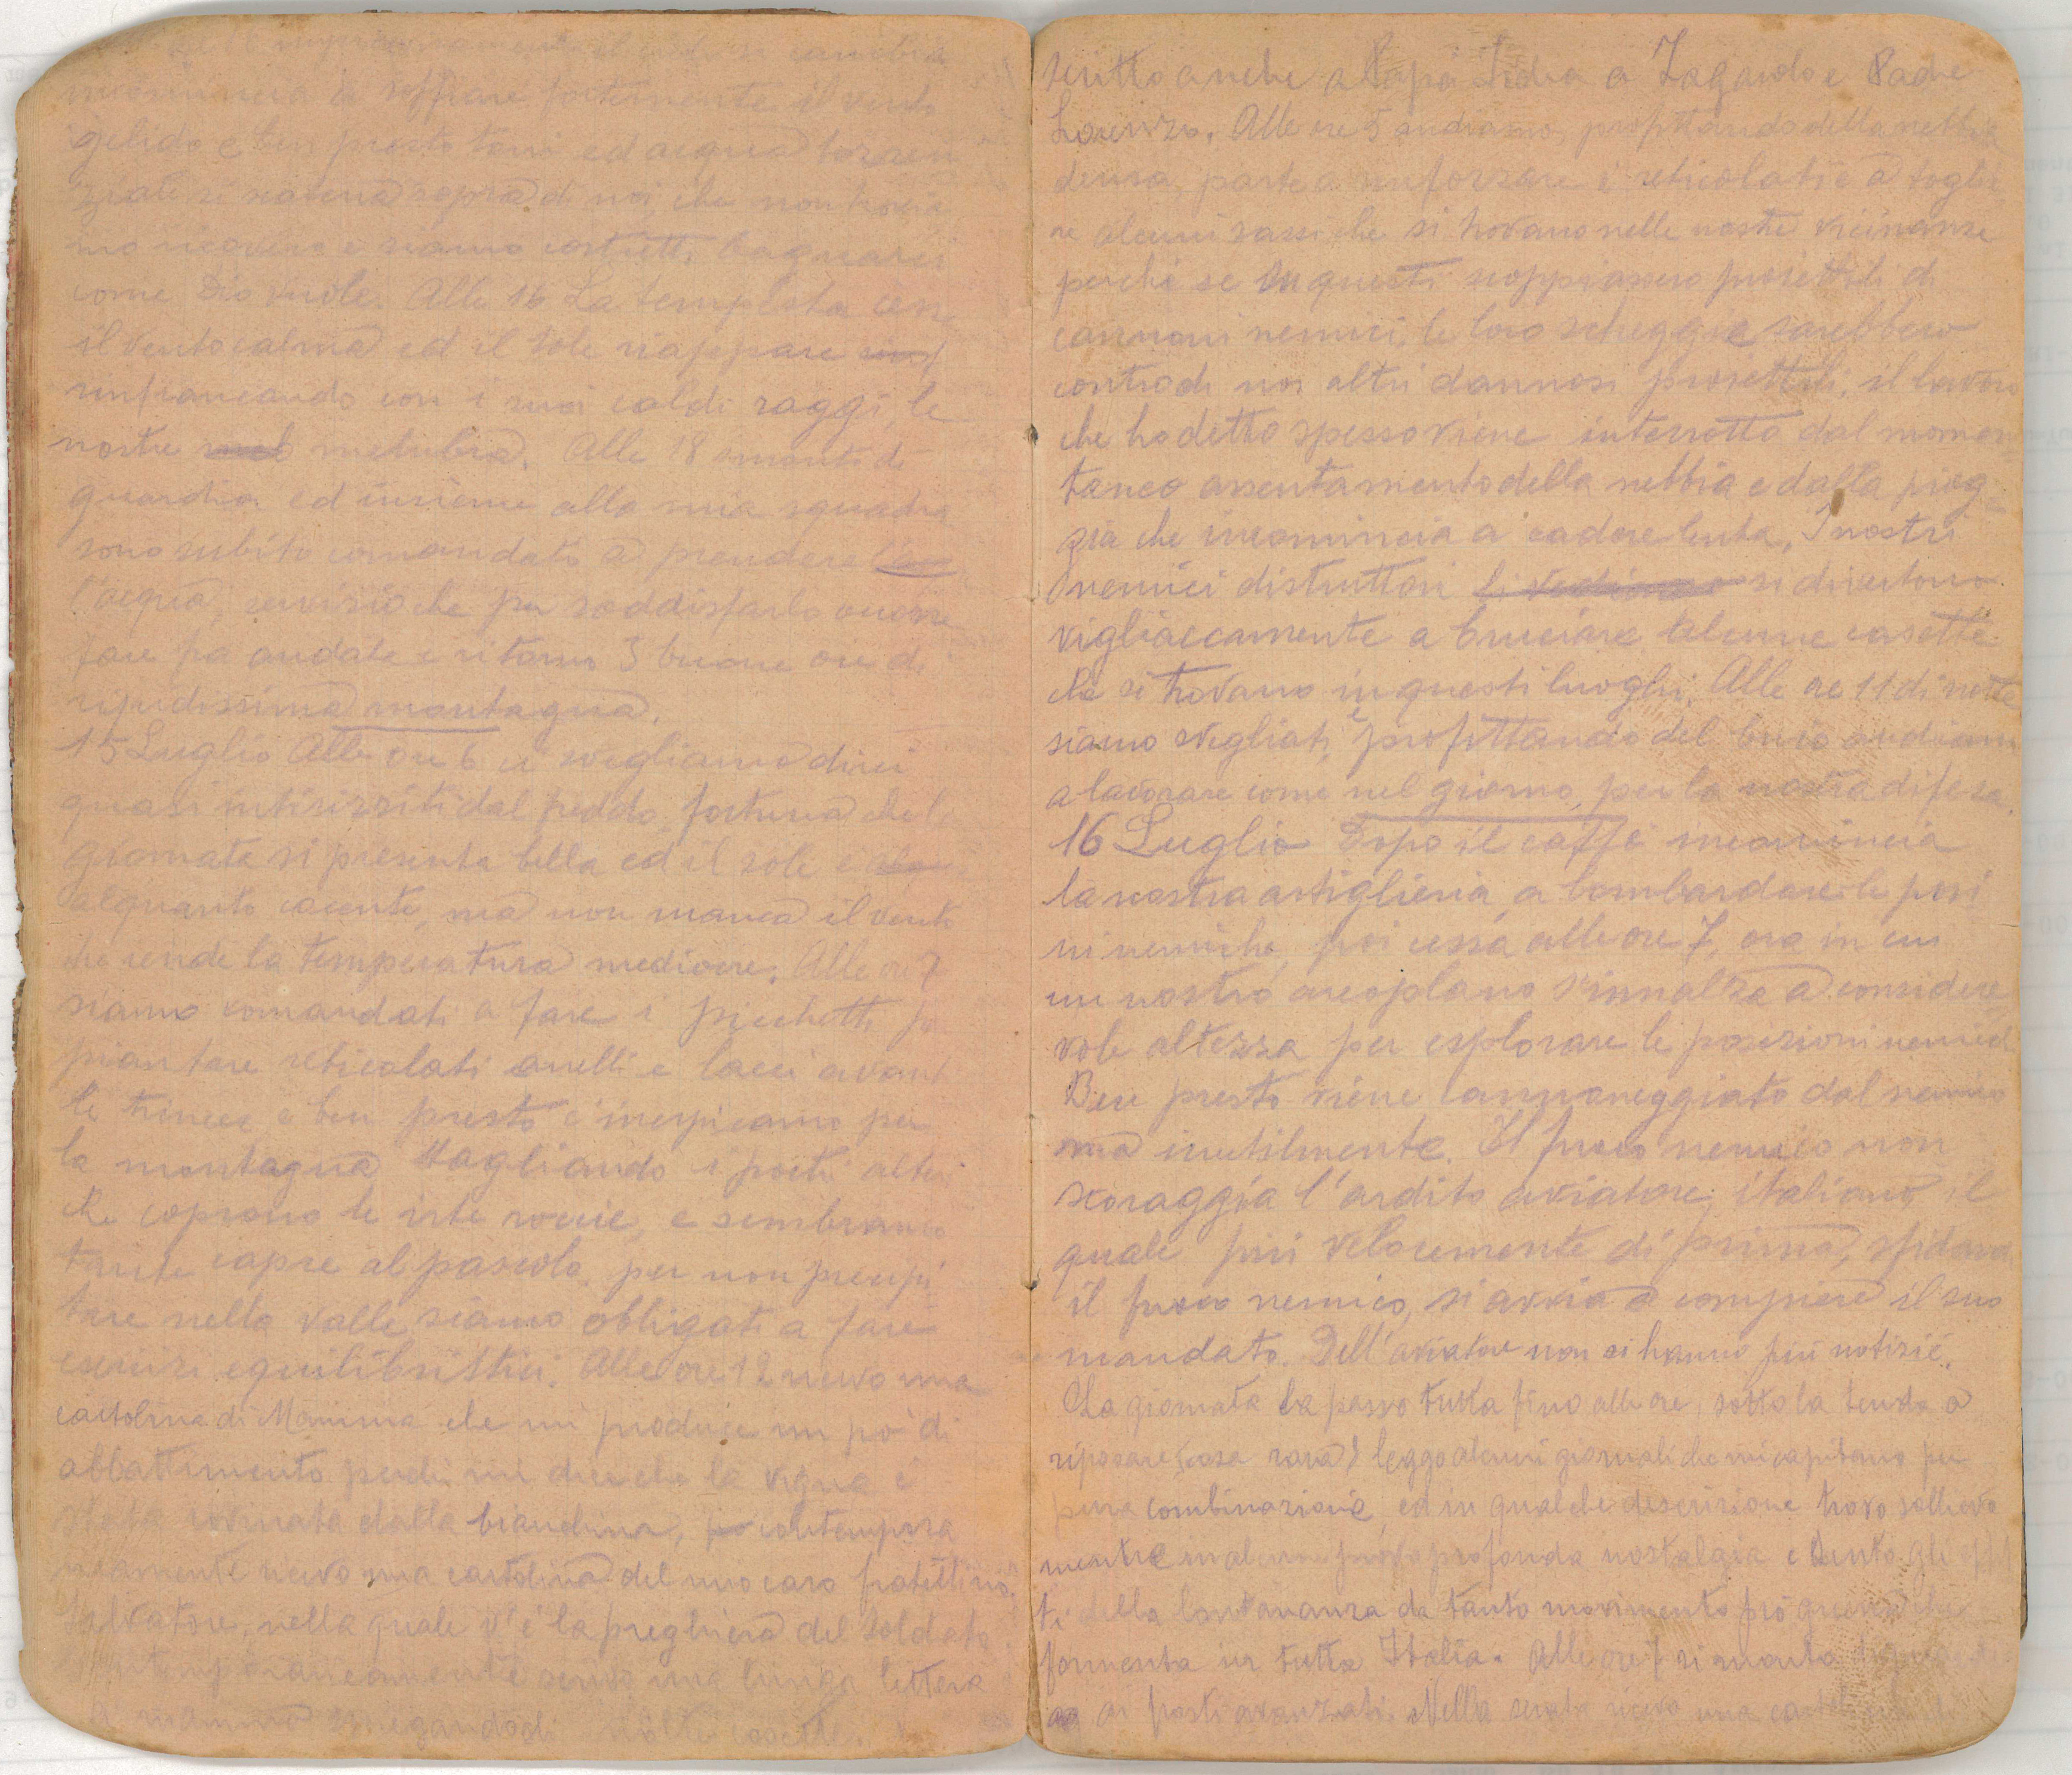 incomincia a soffiare fortemente il vento
gelido e ben presto tuoni ed acqua torren
ziale si scatena sopra di noi, che non trovia
mo ricovero e siamo costretti bagnarci
come Dio vuole. Alle 16 La tempesta cessa
il vento calma ed il sole riappare
rinfrancando con i suoi caldi raggi, le
nostre membra. Alle 18 smonto di
guardia ed insieme alla mia squadra
sono subito comandato a prendere
l'acqua, servizio che per soddisfarlo occorre
fare fra andata e ritorno 3 buone ore di
ripidissima montagna.
15 Luglio Alle ore 6 ci svegliamo direi
quasi intirizziti dal freddo, fortuna che la
giornata si presenta bella ed il sole e
alquanto cocente, ma non manca il vento
che rende la temperatura mediocre. Alle ore 7
siamo comandati a fare i picchetti per
piantare reticolati anelli e lacci avanti
le trincee e ben presto c'inerpicamo per
la montagna tagliando i pochi alberi
che coprono le irte roccie, e sembriamo
tante capre al pascolo. per non precipi
tare nella valle siamo obbligati a fare
esercizi equilibristici. Alle ore 12 ricevo una
cartolina di Mamma che mi produce un pò di
abbattimento perchè mi dice che la vigna è
stata rovinata dalla biandina, contempora
niamente ricevo una cartolina del mio caro fratellino
Salvatore, nella quale v'è la preghiera del soldato
contemporaneamente scrivo una lunga lettera
a mamma spiegandogli molte cosette.
scritto anche a Papà Lidia a Zagarolo e Padre
Lorenzo. Alle ore 5 andiamo, profittando della nebbia
densa, parte a rinforzare i reticolati e a toglie
re alcuni sassi che si trovano nelle nostre vicinanze
perchè se in questi scoppiassero proiettili di
cannoni nemici, le loro scheggie sarebbero
contro di noi altri dannosi proiettili, il lavoro
che ho detto spesso viene interrotto dal momen
taneo assentamento della nebbia e dalla piog-
gia che incomincia a cadere lenta. I nostri
nemici distruttori li vediamo si divertono
vigliaccamente a bruciare alcune casette
che si trovano in questi luoghi. Alle ore 11 di notte
siamo svegliati, e profittando del buio andiamo
a lavorare come nel giorno, per la nostra difesa.
16 Luglio Dopo il caffè incomincia
la nostra artiglieria a bombardare le posi
ni nemiche, poi cessa alle ore 7, ora in cui
un nostro areoplano s'innalza a considere
vole altezza per esplorare le posizioni nemiche
Ben presto viene cannoneggiato dal nemico
ma inutilmente. Il fuoco nemico non
scoraggia l'ardito aviatore, italiano, il
quale più velocemente di prima, sfidando
il fuoco nemico, si avvia a compiere il suo
mandato. Dell'aviatore non si hanno più notizie.
La giornata la passo tutta fino alle ore, sotto la tenda a
riposare (cosa rara) leggo alcuni giornali che mi capitano per
pura combinazione, ed in qualche descrizione trovo sollievo
mentre in alcune provo profonda nostalgia e sento gli effet
ti della lontananza da tanto movimento prò guerra che
fermenta in tutta Italia. Alle ore 7 si monta
ai posti avanzati. Nella serata ricevo una